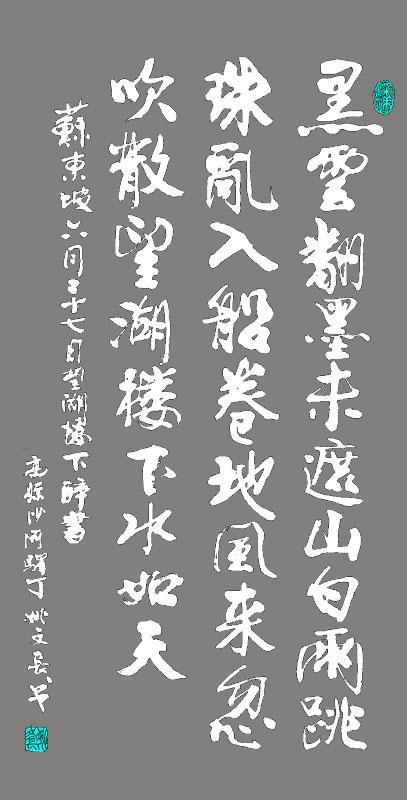 黑雲翻墨未遮山白雨跳
珠亂入船卷地風来忽
吹散望湖楼下水如天
蘇東坡六月二十七日望湖楼下醉書
丁 姚文